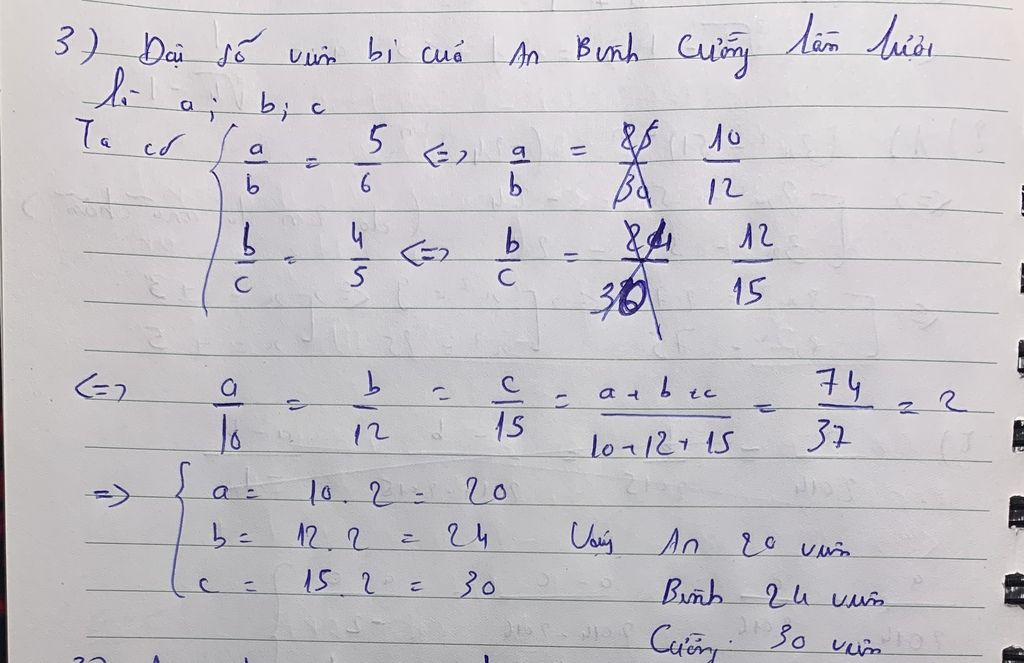 3) Đặt số viên bi của An Bình Cường lần lượt
là a; b; c
Ta có { a/b = 5/6 <=> a/b = 10/12
b/c = 4/5 <=> b/c = 12/15
<=> a/10 = b/12 = c/15 = (a + b + c)/(10 + 12 + 15) = 74/37 = 2
=> { a = 10 . 2 = 20
b = 12 . 2 = 24 Vậy An 20 viên
c = 15 . 2 = 30 Bình 24 viên
Cường 30 viên